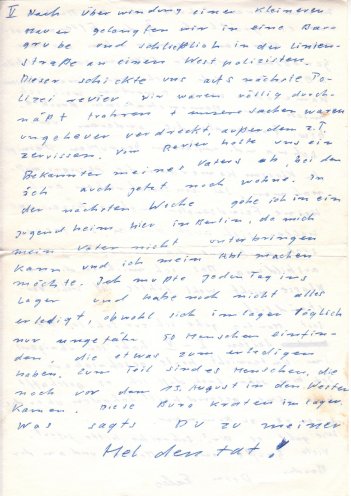 II Nach Überwindung einer kleineren
Mauer gelangten wir in eine Bau-
grube und schließlich in der Linien-
straße an einem Westpolizisten.
Dieser schickte uns aufs nächste Po-
lizei revier, wir waren völlig durch-
näßt froren + unsere Sachen waren
ungeheuer verdreckt, außerdem z.T.
zerrissen. Vom Revier holte uns ein
Bekannter meines Vaters ab, bei dem
ich auch jetzt noch wohne. In
der nächsten Woche gehe ich in ein
Jugendheim hier in Berlin, da mich
mein Vater nicht unterbringen
kann und ich mein Abi machen
möchte. Ich mußte jeden Tag ins
Lager und habe noch nicht alles
erledigt, obwohl sich im Lager täglich
nur ungefähr 50 Menschen einfin-
den, die etwas zum erledigen
haben. Zum Teil sind es Menschen, die
noch vor dem 13. August in den Westen
kamen. Diese Bürokraten im Lager.
Was sagts Du zu meiner
Heldentat!